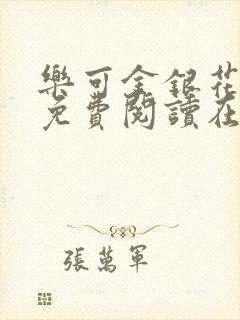 樂可金銀花
免費閱讀在
張萬軍